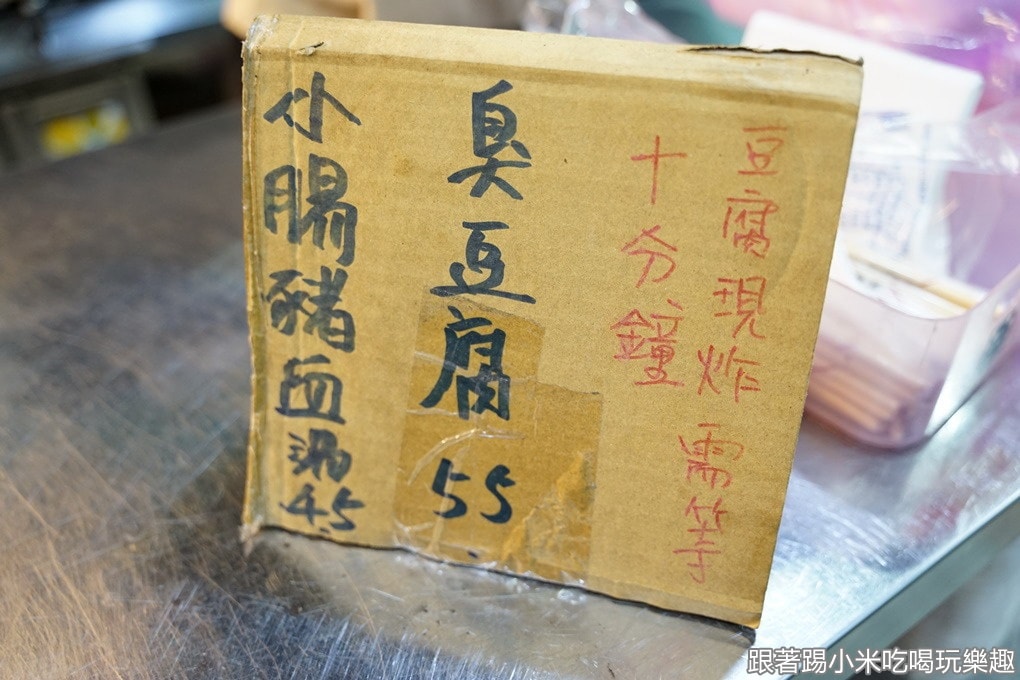 豆腐現炸 需等
十分鐘
臭豆腐 55
小腸豬血湯 45
跟著踢小米吃喝玩樂趣